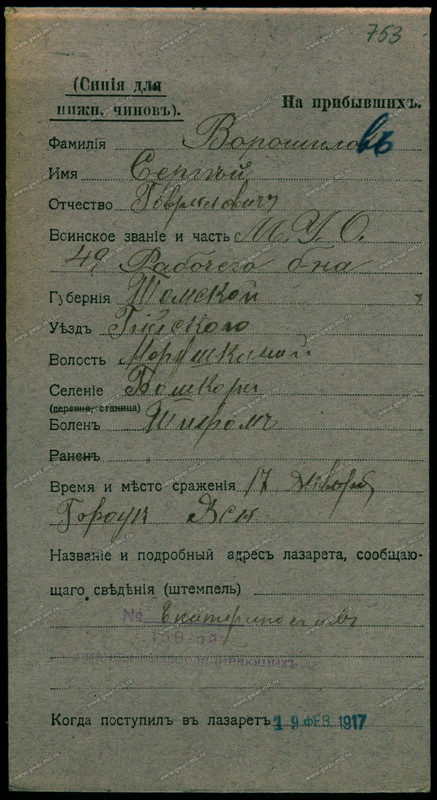 763
(Синія для
нижн. чиновъ).
На прибывшихъ.
Фамилія Ворошиловъ
Имя Сергѣй
Отчество Гаврилович
Воинское званіе и часть М. У. О.
49 Рабочего б-на
Губернія Томской
Уѣздъ Бійского
Волость
Селеніе
(деревня, станица)
Боленъ Тифомъ
Раненъ
Время и мѣсто сраженія 17
Названіе и подробный адресъ лазарета, сообщаю-
щаго свѣдѣнія (штемпель)
№ Екатеринославъ
159
Когда поступилъ въ лазаретъ 19 ФЕВ 1917
www.gwar.mil.ru